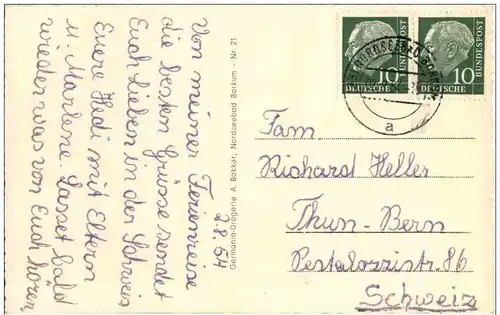 Von meiner Ferienreise
2.8.54
die besten Grüsse sendet
Euch lieben in der Schweiz
Eure Hedi mit Eltern
u. Marlene. Lasset bald
wieder was von Euch hören.
Germania-Drogerie A. Bakker, Nordseebad Borkum - Nr. 21
10
DEUTSCHE
BUNDESPOST
10
DEUTSCHE
BUNDESPOST
NORDSEEBAD BORKUM
a
Fam.
Richard Heller
Thun-Bern
Pestalozzistr. 86
Schweiz